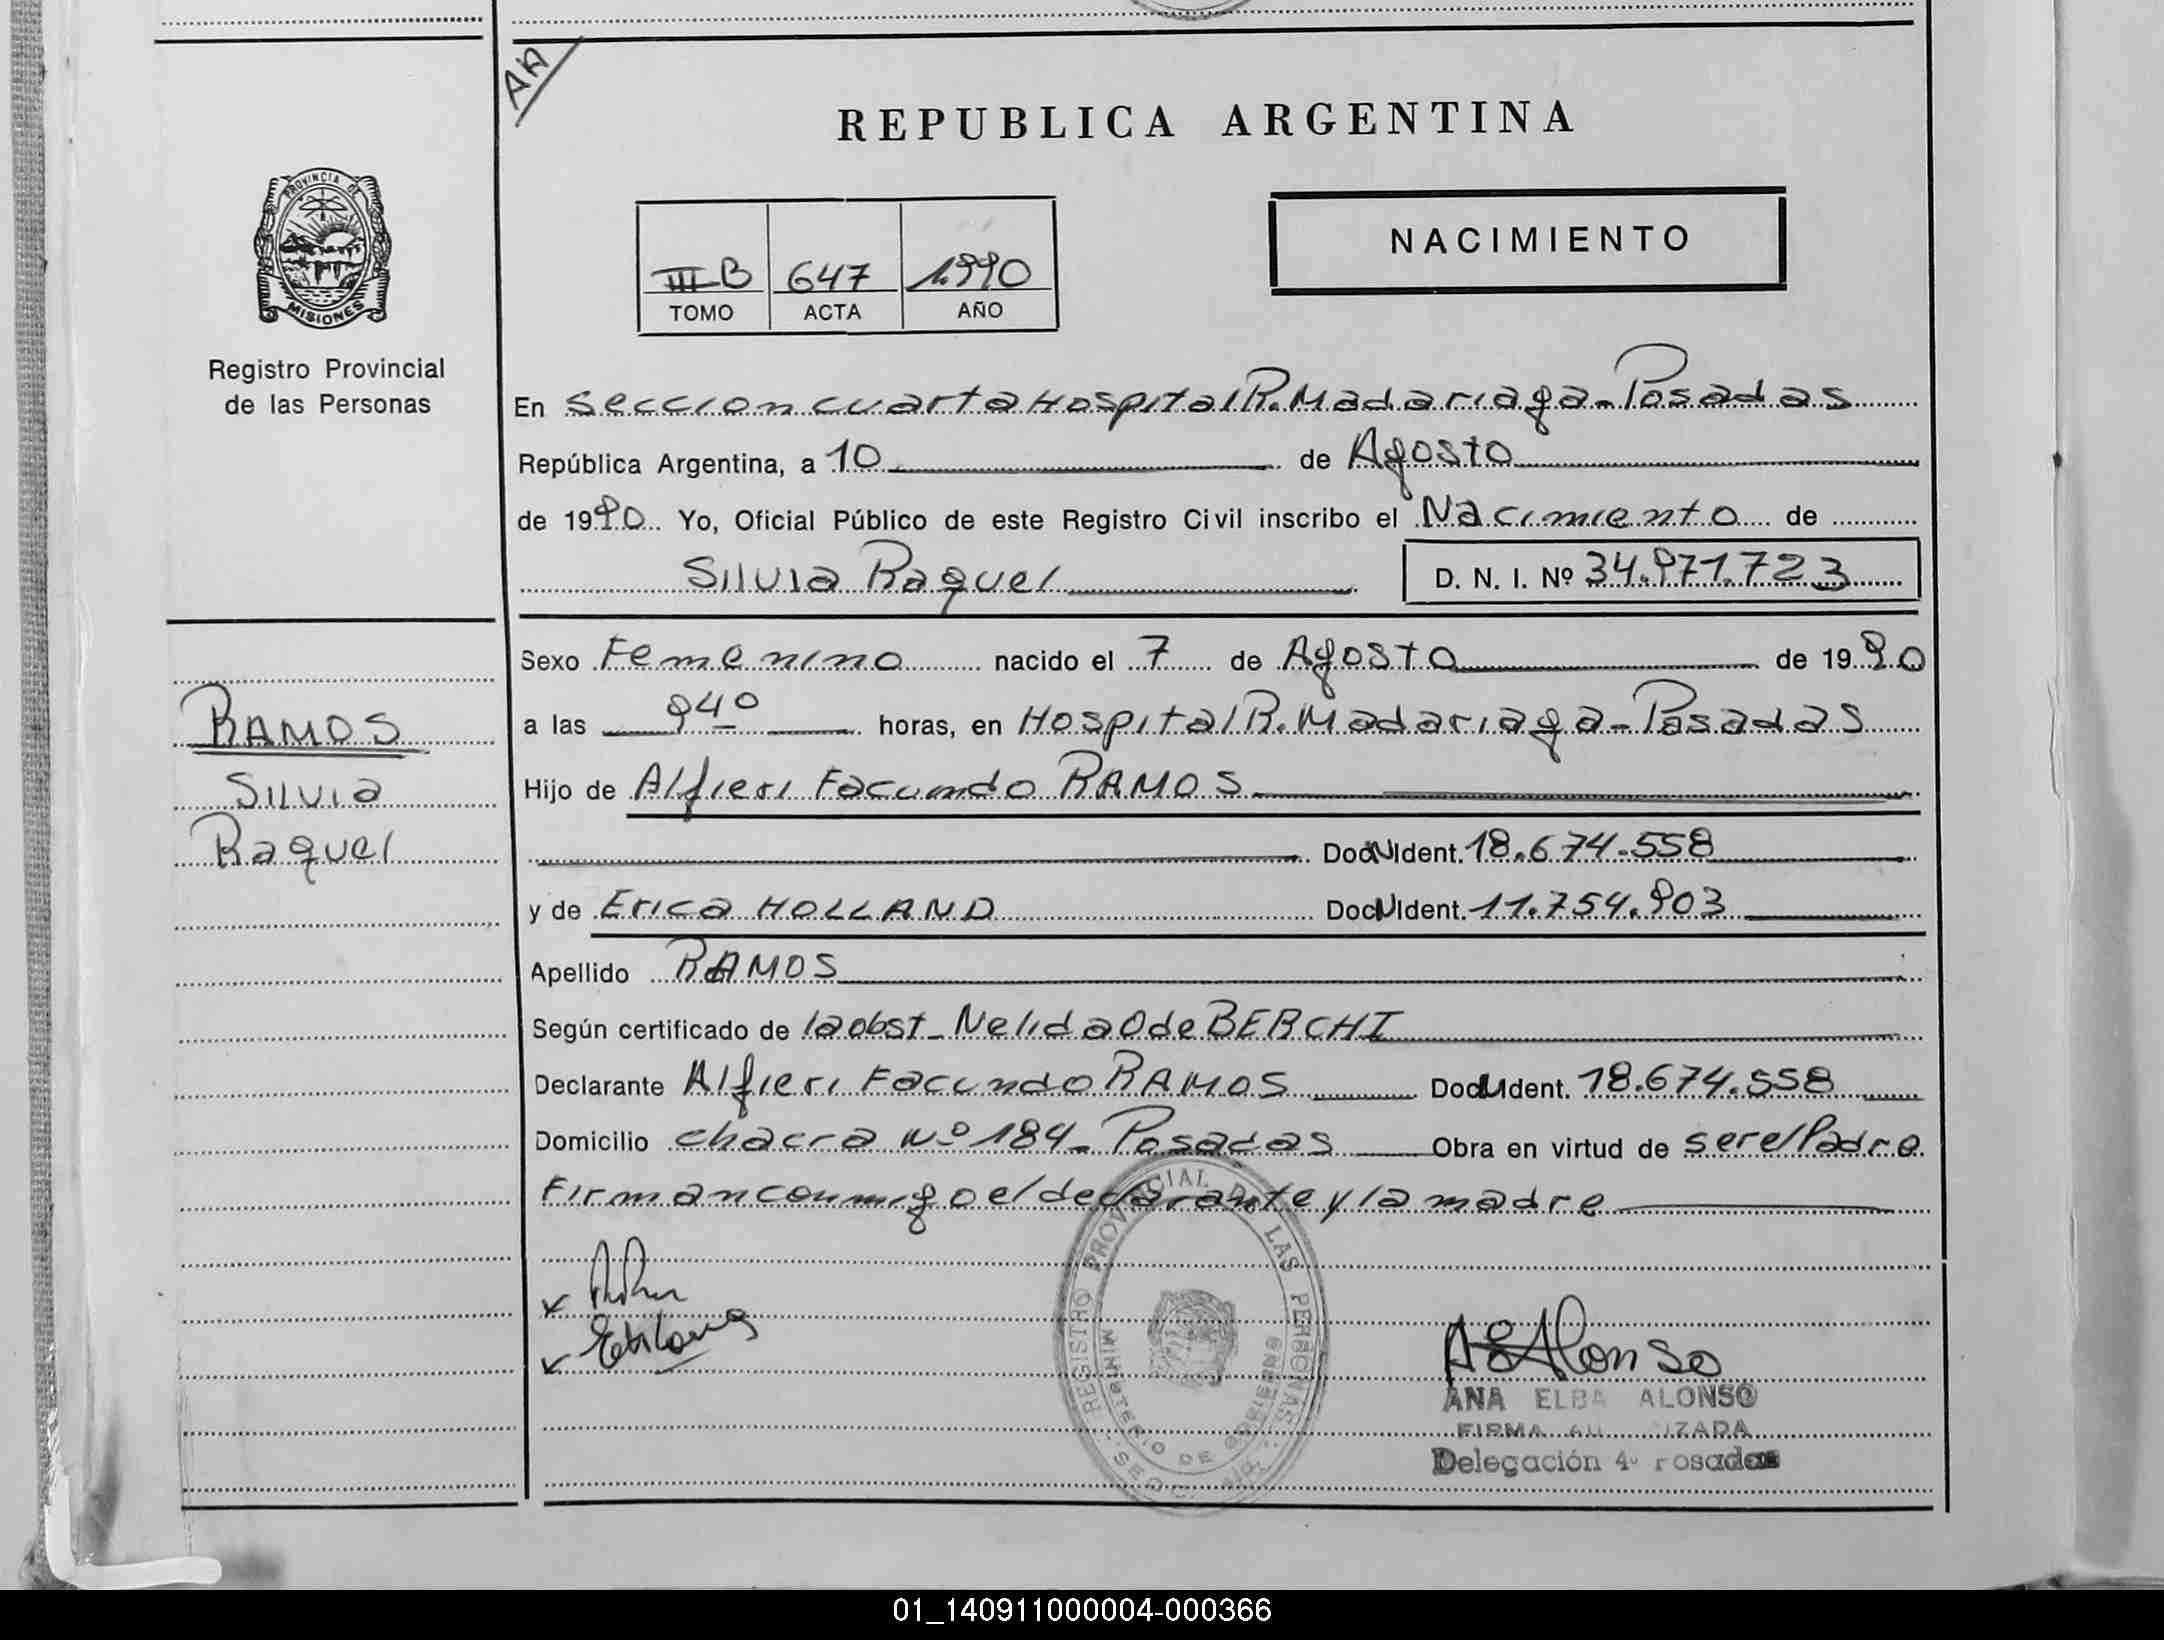 AA
REPUBLICA ARGENTINA
PROVINCIA DE
MISIONES
Registro Provincial
de las Personas
III B 647 1.990
TOMO ACTA AÑO
NACIMIENTO
En seccion cuarta Hospital R. Madariaga - Posadas
República Argentina, a 10 de Agosto
de 1990 Yo, Oficial Público de este Registro Civil inscribo el Nacimiento de
Silvia Raquel D. N. I. Nº 34.971.723
Sexo Femenino nacido el 7 de Agosto de 1990
a las 9 40 horas, en Hospital R. Madariaga - Posadas
RAMOS
Silvia
Raquel
Hijo de Alfieri Facundo RAMOS
Doc N Ident. 18.674.558
y de Erica HOLLAND Doc N Ident. 11.754.903
Apellido RAMOS
Según certificado de la obst - Nelida O de BERCHI
Declarante Alfieri Facundo RAMOS Doc N Ident. 18.674.558
Domicilio chacra Nº 184 - Posadas Obra en virtud de ser el Padre
Firman conmigo el declarante y la madre
REGISTRO PROVINCIAL DE LAS PERSONAS
MINISTERIO DE GOBIERNO
A E Alonso
ANA ELBA ALONSO
FIRMA
Delegación 4
01_140911000004-000366